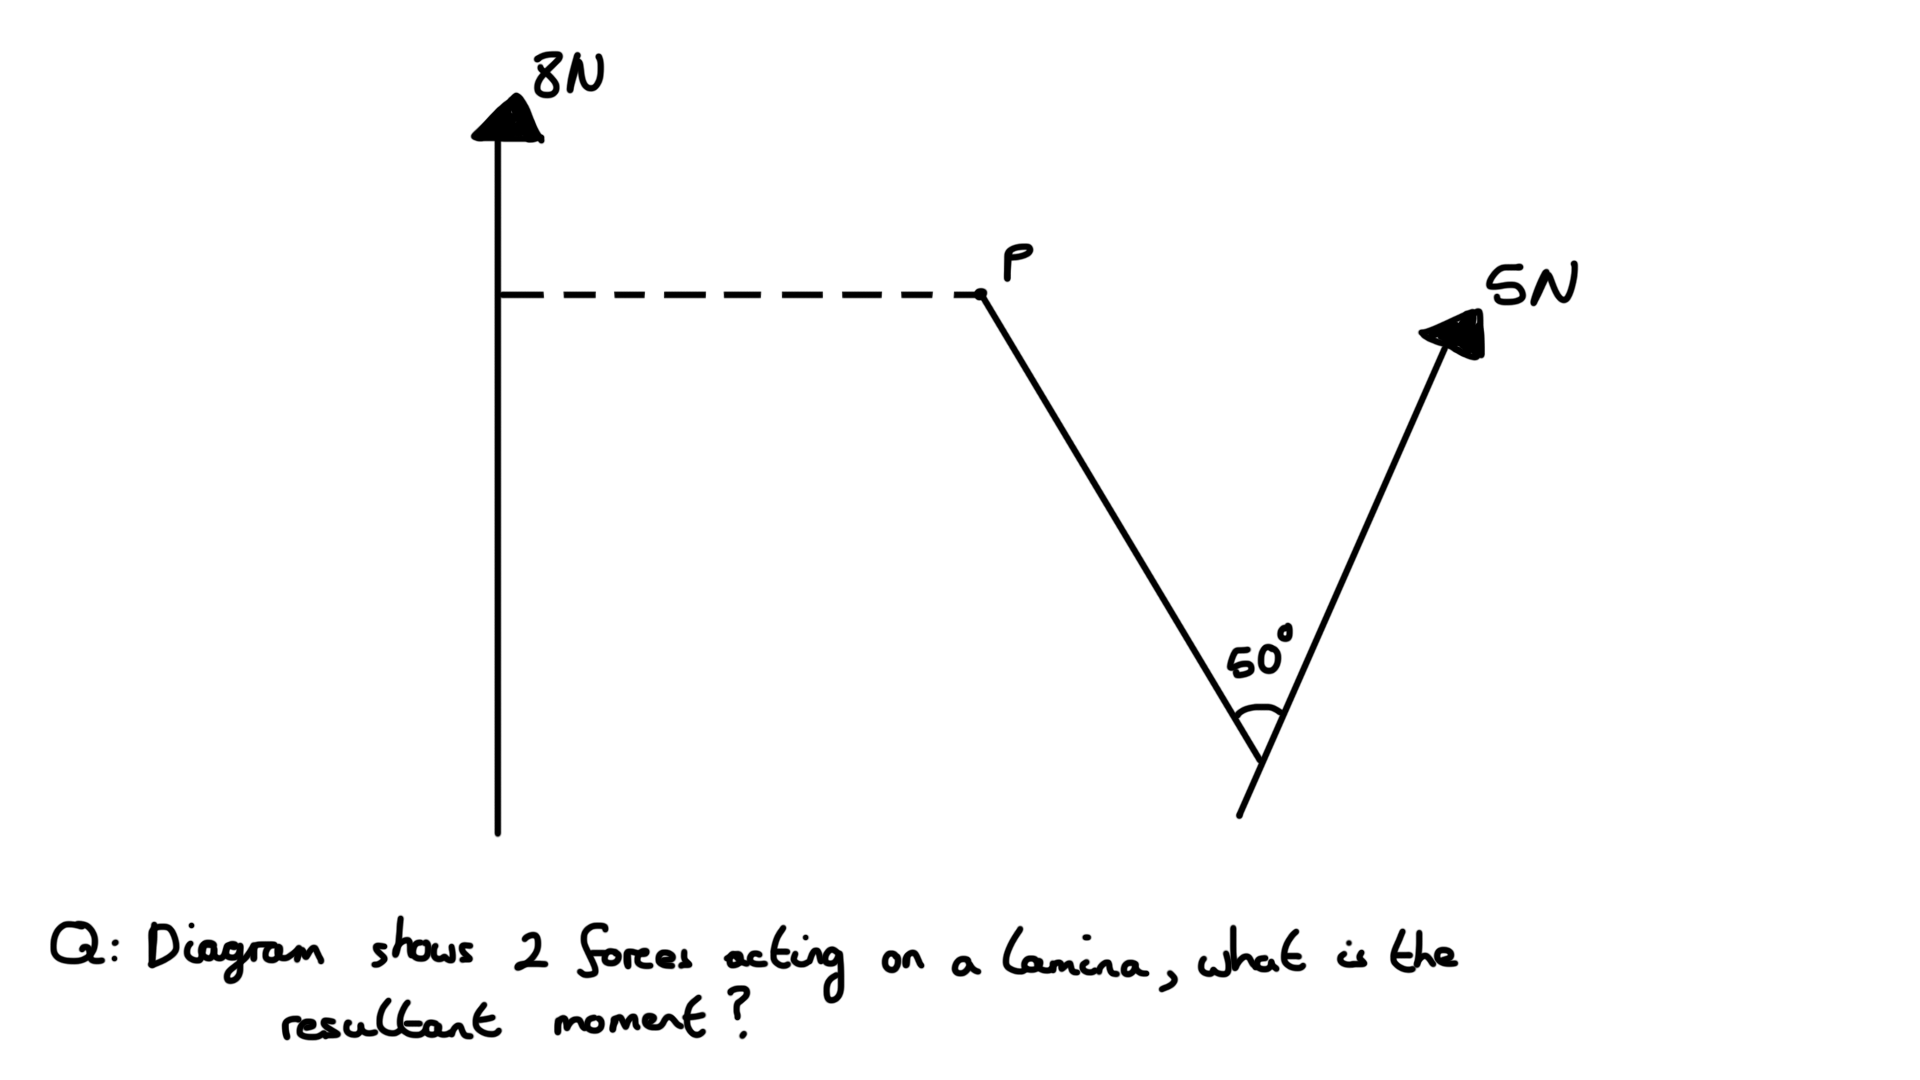 8N
P
5N
50°
Q: Diagram shows 2 forces acting on a lamina, what is the
resultant moment?